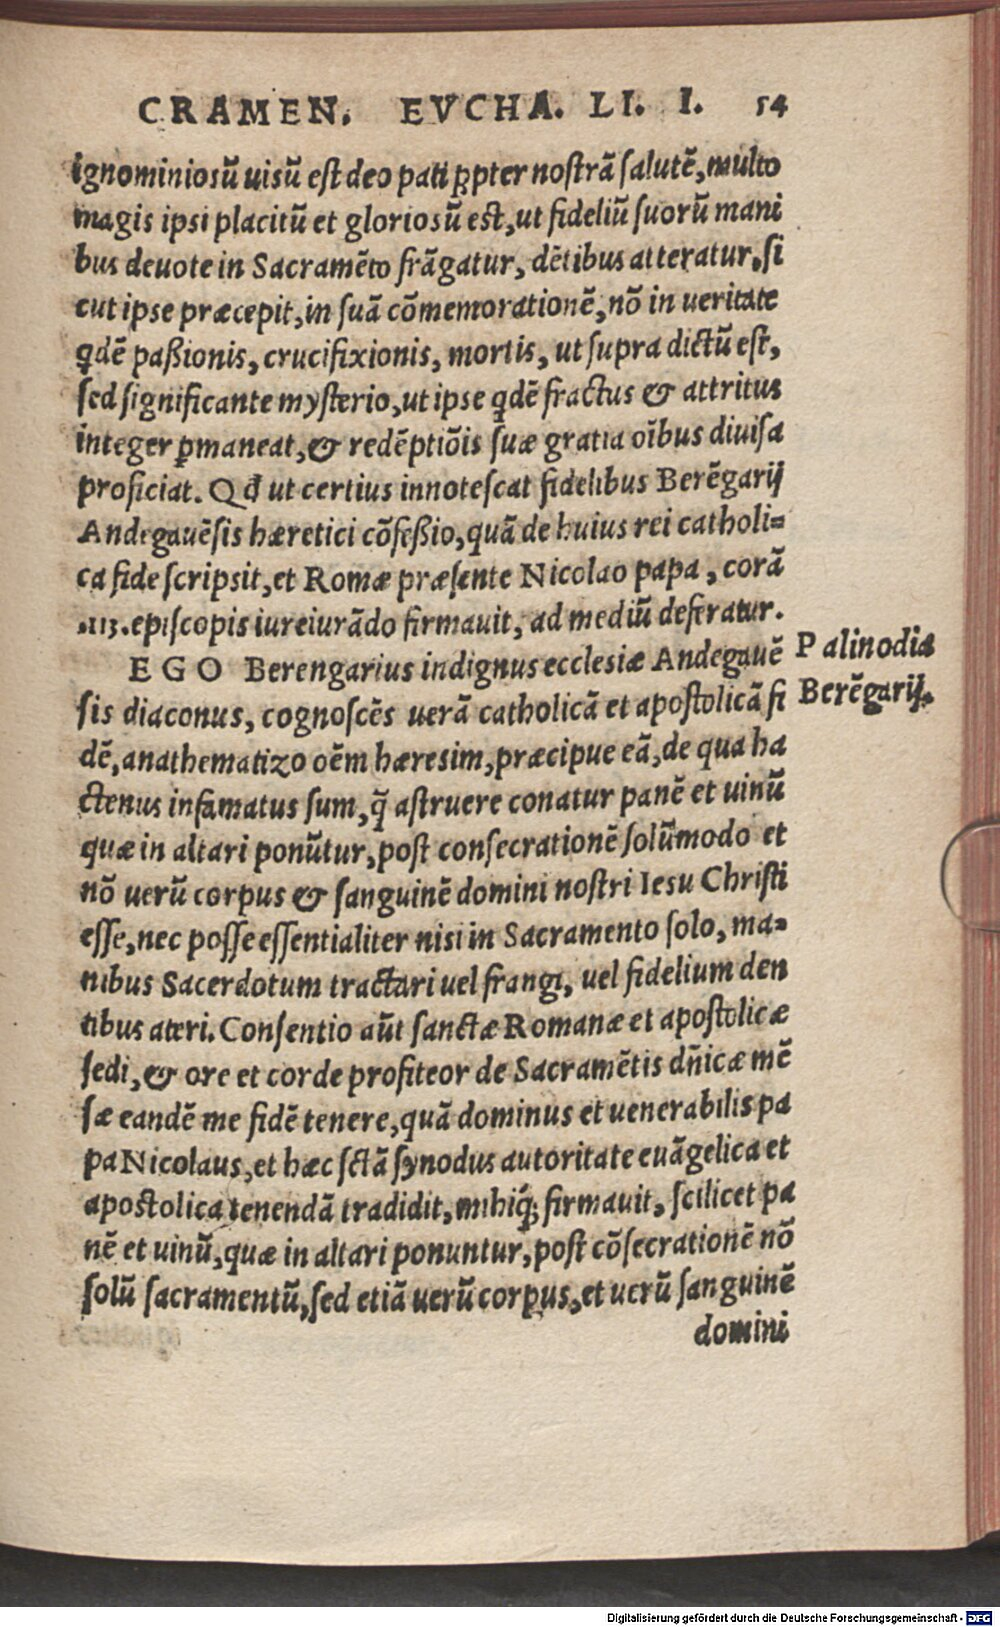 CRAMEN. EVCHA. LI. I. 54
ignominiosũ uisũ est deo pati ꝓpter nostrã salutẽ, multo
magis ipsi placitũ et gloriosũ est, ut fideliũ suorũ mani
bus deuote in Sacramẽto frãgatur, dẽtibus atteratur, si
cut ipse præcepit, in suã cõmemorationẽ, nõ in ueritate
qdẽ paßionis, crucifixionis, mortis, ut supra dictũ est,
sed significante mysterio, ut ipse qdẽ fractus & attritus
integer ꝑmaneat, & redẽptiõis suæ gratia oĩbus diuisa
proficiat. Qđ ut certius innotescat fidelibus Berẽgarij
Andegauẽsis hæretici cõfeßio, quã de huius rei catholi=
ca fide scripsit, et Romæ præsente Nicolao papa, corã
episcopis iureiurãdo firmauit, ad mediũ deferatur.
EGO Berengarius indignus ecclesiæ Andegauẽ
Palinodia
Berẽgarij.
sis diaconus, cognoscẽs uerã catholicã et apostolicã fi
dẽ, anathematizo oẽm hæresim, præcipue eã, de qua ha
ctenus infamatus sum, q̃ astruere conatur panẽ et uinũ
quæ in altari ponũtur, post consecrationẽ solũmodo et
nõ uerũ corpus & sanguinẽ domini nostri Iesu Christi
esse, nec posse essentialiter nisi in Sacramento solo, ma=
nibus Sacerdotum tractari uel frangi, uel fidelium den
tibus ateri. Consentio aũt sanctæ Romanæ et apostolicæ
sedi, & ore et corde profiteor de Sacramẽtis dñicæ mẽ
sæ eandẽ me fidẽ tenere, quã dominus et uenerabilis pa
pa Nicolaus, et hæc sctã synodus autoritate euãgelica et
apostolica tenendã tradidit, mihiq́; firmauit, scilicet pa
nẽ et uinũ, quæ in altari ponuntur, post cõsecrationẽ nõ
solũ sacramentũ, sed etiã uerũ corpus, et uerũ sanguinẽ
domini
Digitalisierung gefördert durch die Deutsche Forschungsgemeinschaft - DFG